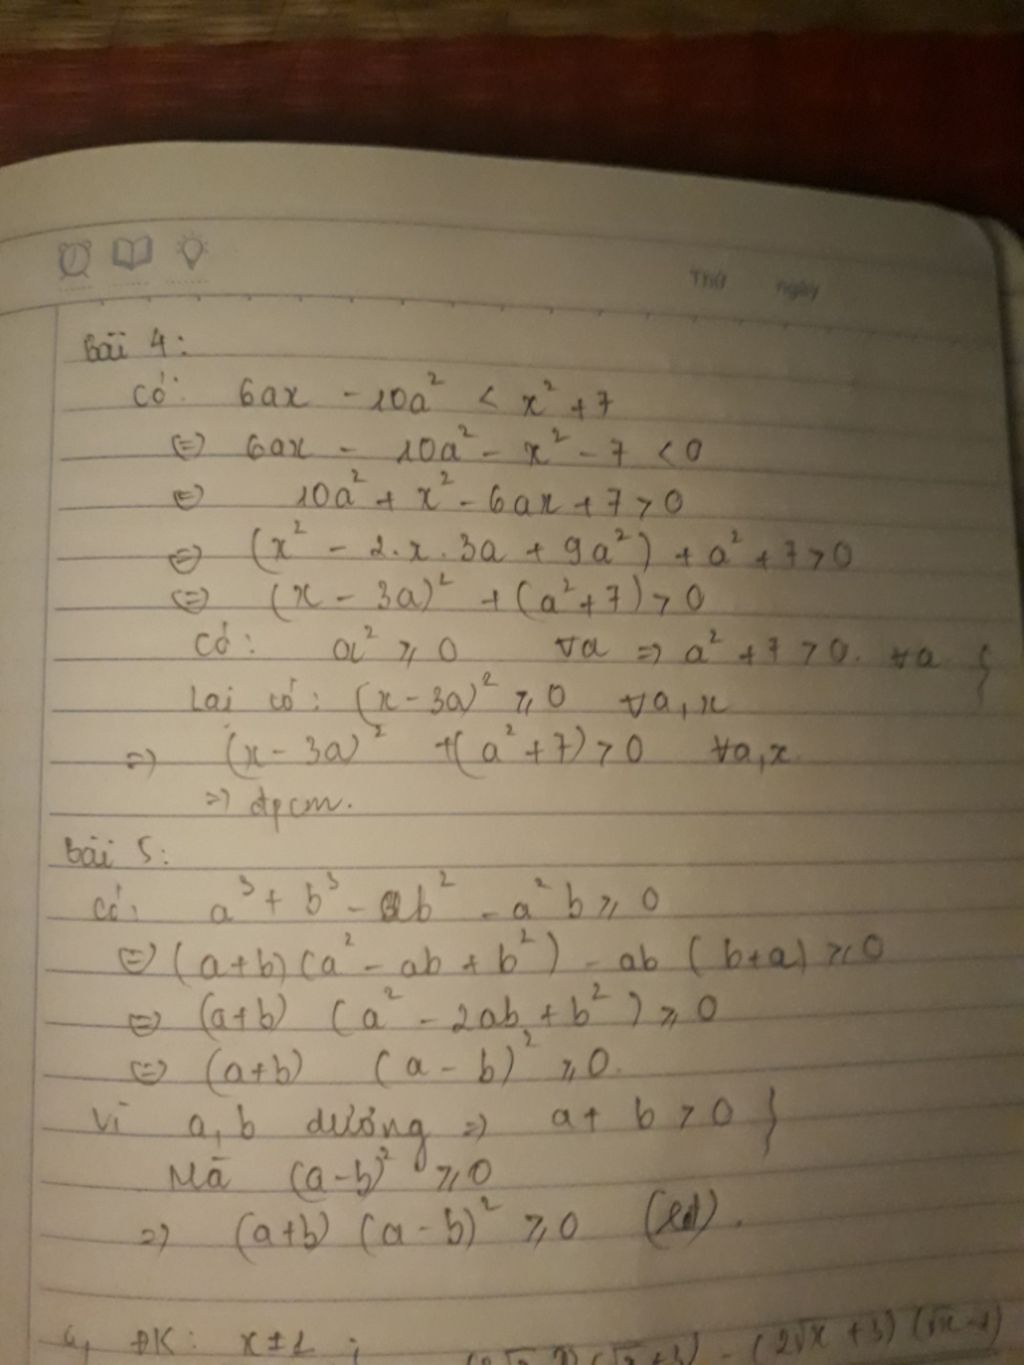 Thứ ngày
Bài 4:
Có: 6ax - 10a² < x² + 7
(=) 6ax - 10a² - x² - 7 < 0
(=) 10a² + x² - 6ax + 7 > 0
(=) (x² - 2.x.3a + 9a²) + a² + 7 > 0
(=) (x - 3a)² + (a² + 7) > 0
Có: a² ⩾ 0 ∀a => a² + 7 > 0. ∀a }
Lại có: (x - 3a)² ⩾ 0 ∀a, x
=> (x - 3a)² + (a² + 7) > 0 ∀a, x.
=> đpcm.
Bài 5:
Có: a³ + b³ - ab² - a²b ⩾ 0
(=) (a+b) (a² - ab + b²) - ab (b+a) ⩾ 0
(=) (a+b) (a² - 2ab + b²) ⩾ 0
(=) (a+b) (a - b)² ⩾ 0.
Vì a, b dương => a + b > 0 }
Mà (a-b)² ⩾ 0
=> (a+b) (a - b)² ⩾ 0 (lđ).
ĐK: x ± 1 ;
(√x+3) - (2√x + 3) (√x-1)